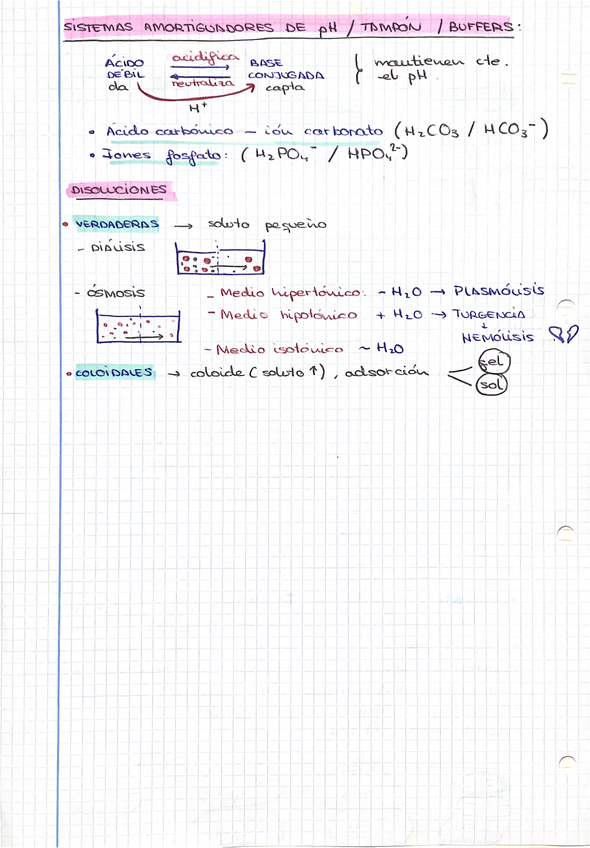 SISTEMAS AMORTIGUADORES DE pH / TAMPÓN / BUFFERS:
ÁCIDO DÉBIL da acidifica BASE CONJUGADA capta } mantienen cte. el pH.
neutraliza
H⁺
• Ácido carbónico – ión carbonato (H₂CO₃ / HCO₃⁻)
• Iones fosfato: (H₂PO₄⁻ / HPO₄²⁻)
DISOLUCIONES
• VERDADERAS → soluto pequeño
- DIÁLISIS
- ÓSMOSIS
- Medio hipertónico: - H₂O → PLASMÓLISIS
- Medio hipotónico + H₂O → TURGENCIA
+
HEMÓLISIS
- Medio isotónico ~ H₂O
• COLOIDALES → coloide (soluto ↑), adsorción
gel
sol